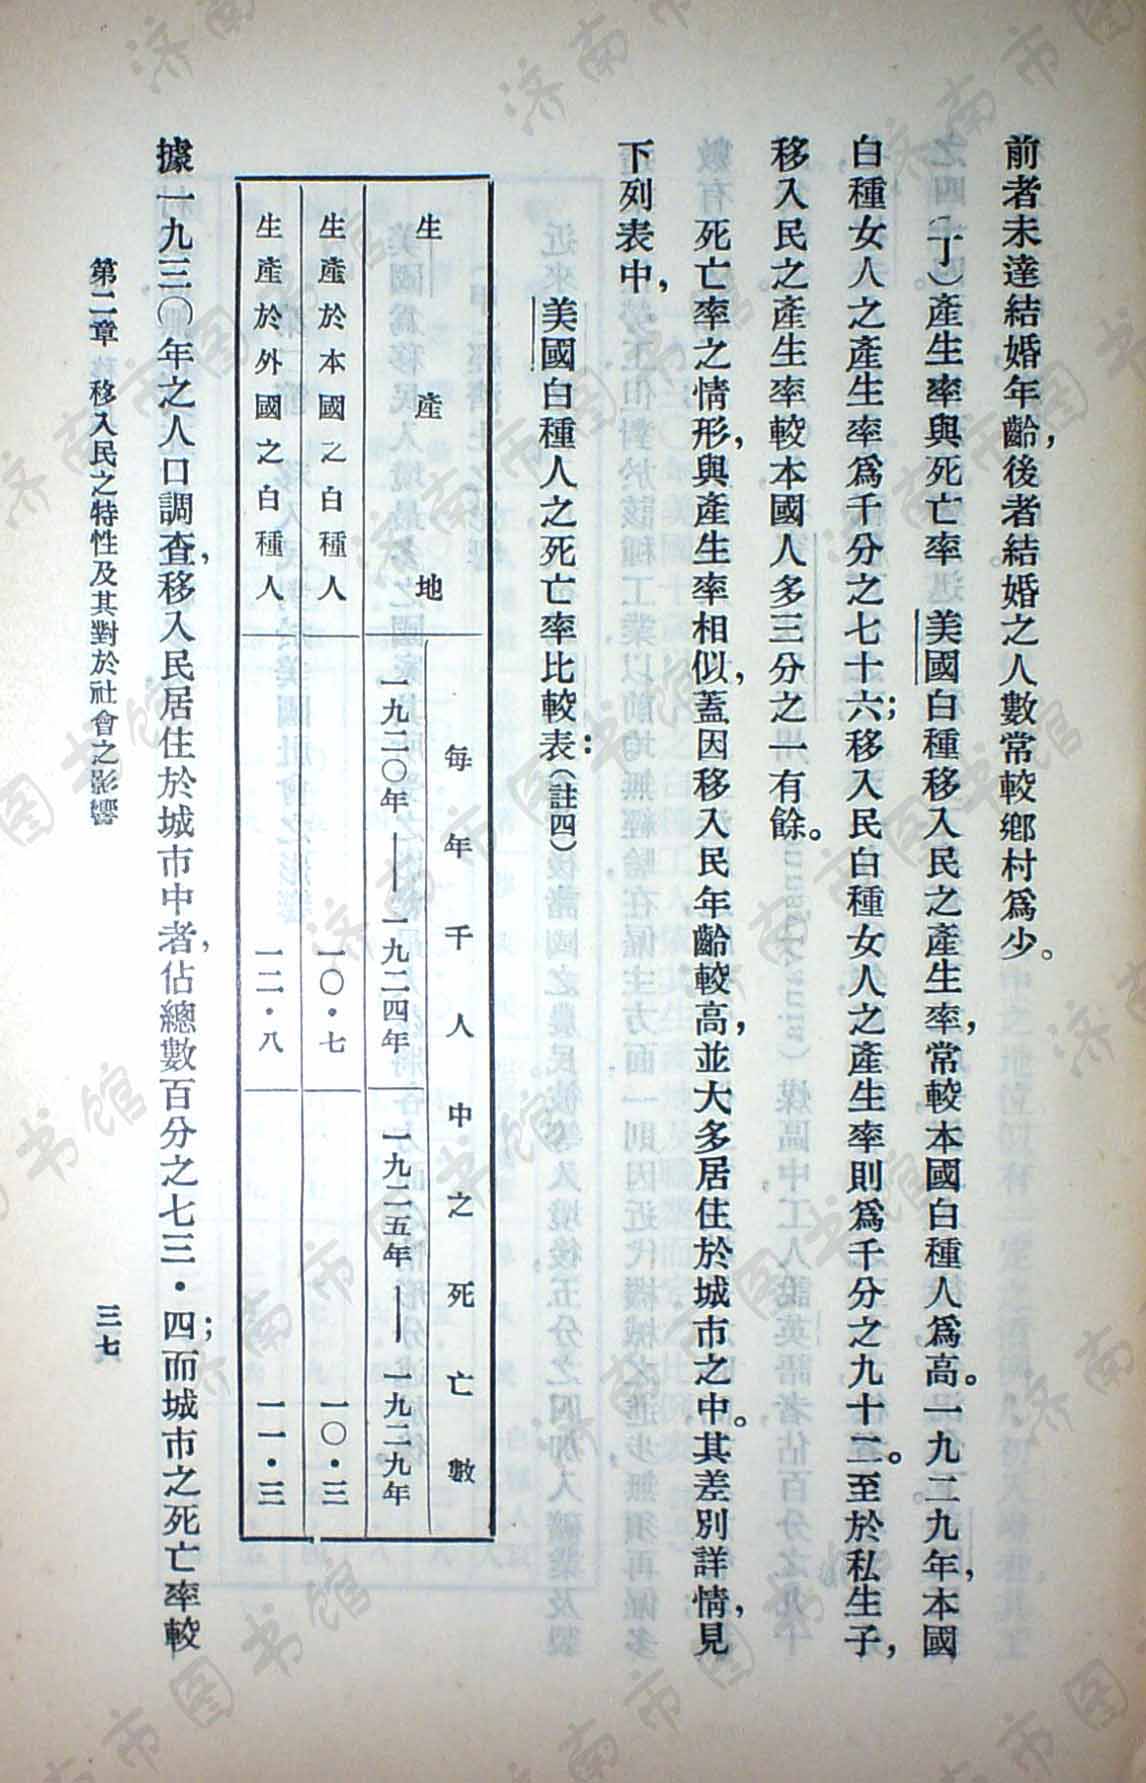 前者未達結婚年齡，後者結婚之人數常較鄉村爲少。
（丁）產生率與死亡率　美國白種移入民之產生率，常較本國白種人爲高。一九二九年，本國
白種女人之產生率爲千分之七十六；移入民白種女人之產生率則爲千分之九十二。至於私生子，
移入民之產生率較本國人多三分之一有餘。
死亡率之情形，與產生率相似，蓋因移入民年齡較高，並大多居住於城市之中。其差別詳情，見
下列表中，
美國白種人之死亡率比較表：（註四）
生產地
每年千人中之死亡數
一九二〇年——一九二四年　一九二五年——一九二九年
生產於本國之白種人　一〇・七　一〇・三
生產於外國之白種人　一二・八　一一・三
據一九三〇年之人口調查，移入民居住於城市中者，佔總數百分之七三・四；而城市之死亡率較
第二章　移入民之特性及其對於社會之影響
三七
济南市图书馆